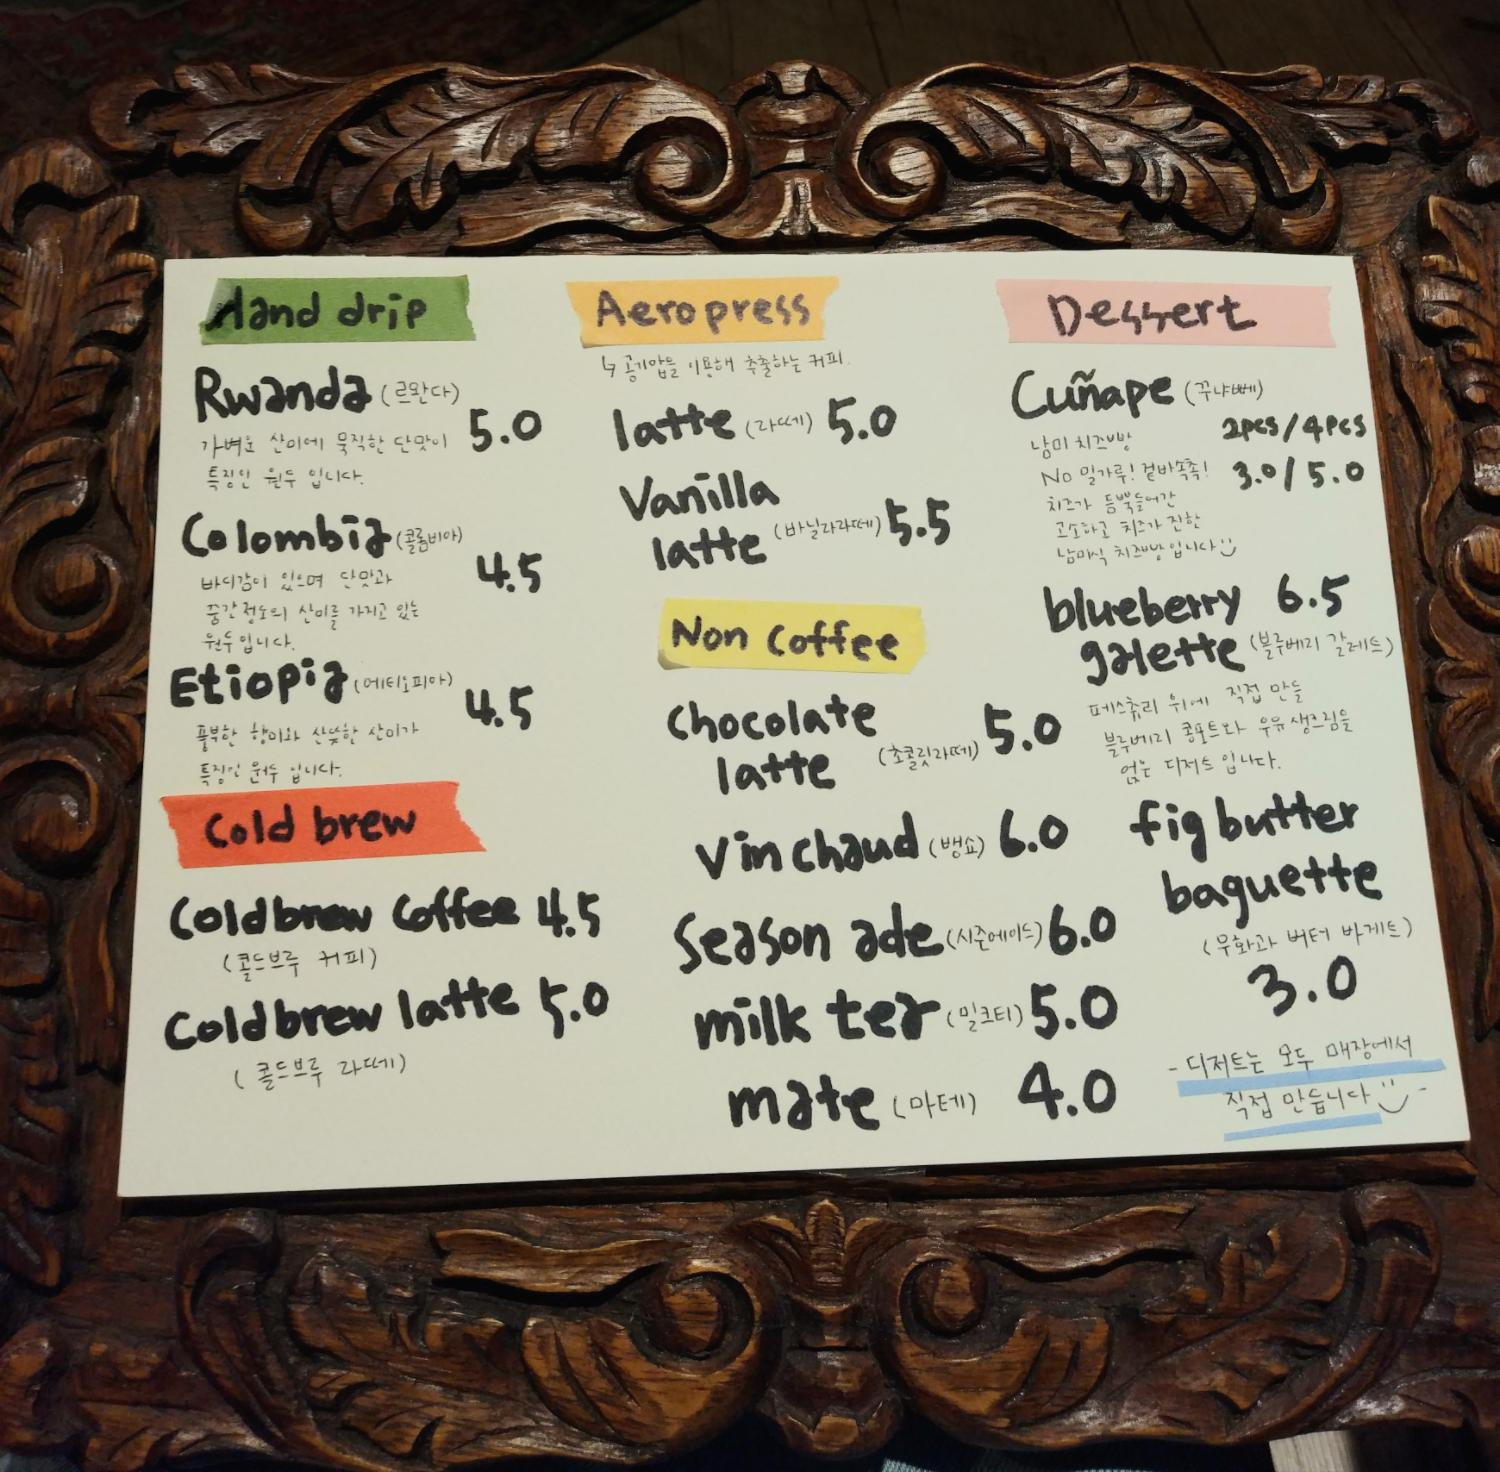 Hand drip
Rwanda (르완다)
5.0
가벼운 산미에 묵직한 단맛이
특징인 원두 입니다.
Colombia (콜롬비아)
4.5
바디감이 있으며 단맛과
중간정도의 산미를 가지고 있는
원두입니다.
Etiopia (에티오피아)
4.5
풍부한 향미와 산뜻한 산미가
특징인 원두 입니다.
Cold brew
Coldbrew Coffee 4.5
(콜드브루 커피)
Coldbrew latte 5.0
(콜드브루 라떼)
Aeropress
↳ 공기압을 이용해 추출하는 커피.
latte (라떼) 5.0
Vanilla
latte (바닐라라떼) 5.5
Non Coffee
Chocolate
latte (초콜릿라떼) 5.0
Vin chaud (뱅쇼) 6.0
Season ade (시즌에이드) 6.0
milk tea (밀크티) 5.0
mate (마테) 4.0
Dessert
Cuñape (꾸냐뻬)
2pcs/4pcs
남미 치즈빵
No 밀가루! 겉바속촉!
3.0/5.0
치즈가 듬뿍들어간
고소하고 치즈가 진한
남미식 치즈빵입니다
blueberry 6.5
galette (블루베리 갈레트)
페스츄리 위에 직접 만든
블루베리 콩포트와 우유 생크림을
얹는 디저트 입니다.
fig butter
baguette
(무화과 버터 바게트)
3.0
- 디저트는 모두 매장에서
직접 만듭니다 -